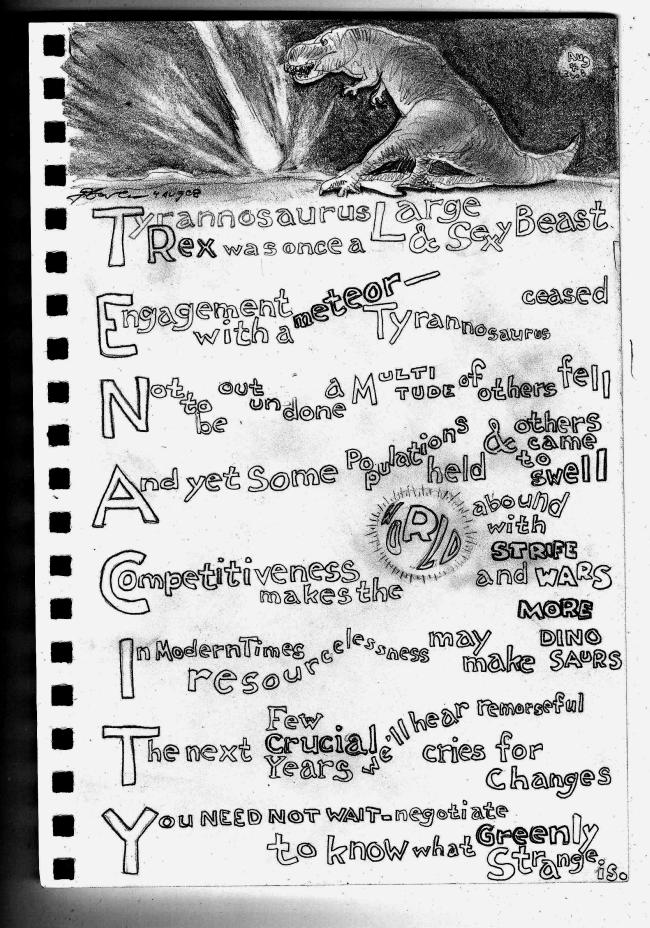 AUG
4 AUG 08
Tyrannosaurus Large & Sexy Beast
T Rex was once a
Engagement with a meteor—
Tyrannosaurus ceased
Not to be out undone a MULTITUDE of others fell
And yet Some Populations held & others came to swell
Competitiveness makes the WORLD abound with STRIFE and WARS
In Modern Times resourcelessness may make MORE DINOSAURS
The next Few Crucial Years we'll hear remorseful cries for Changes
You NEED NOT WAIT-negotiate
to know what Greenly Strange is.